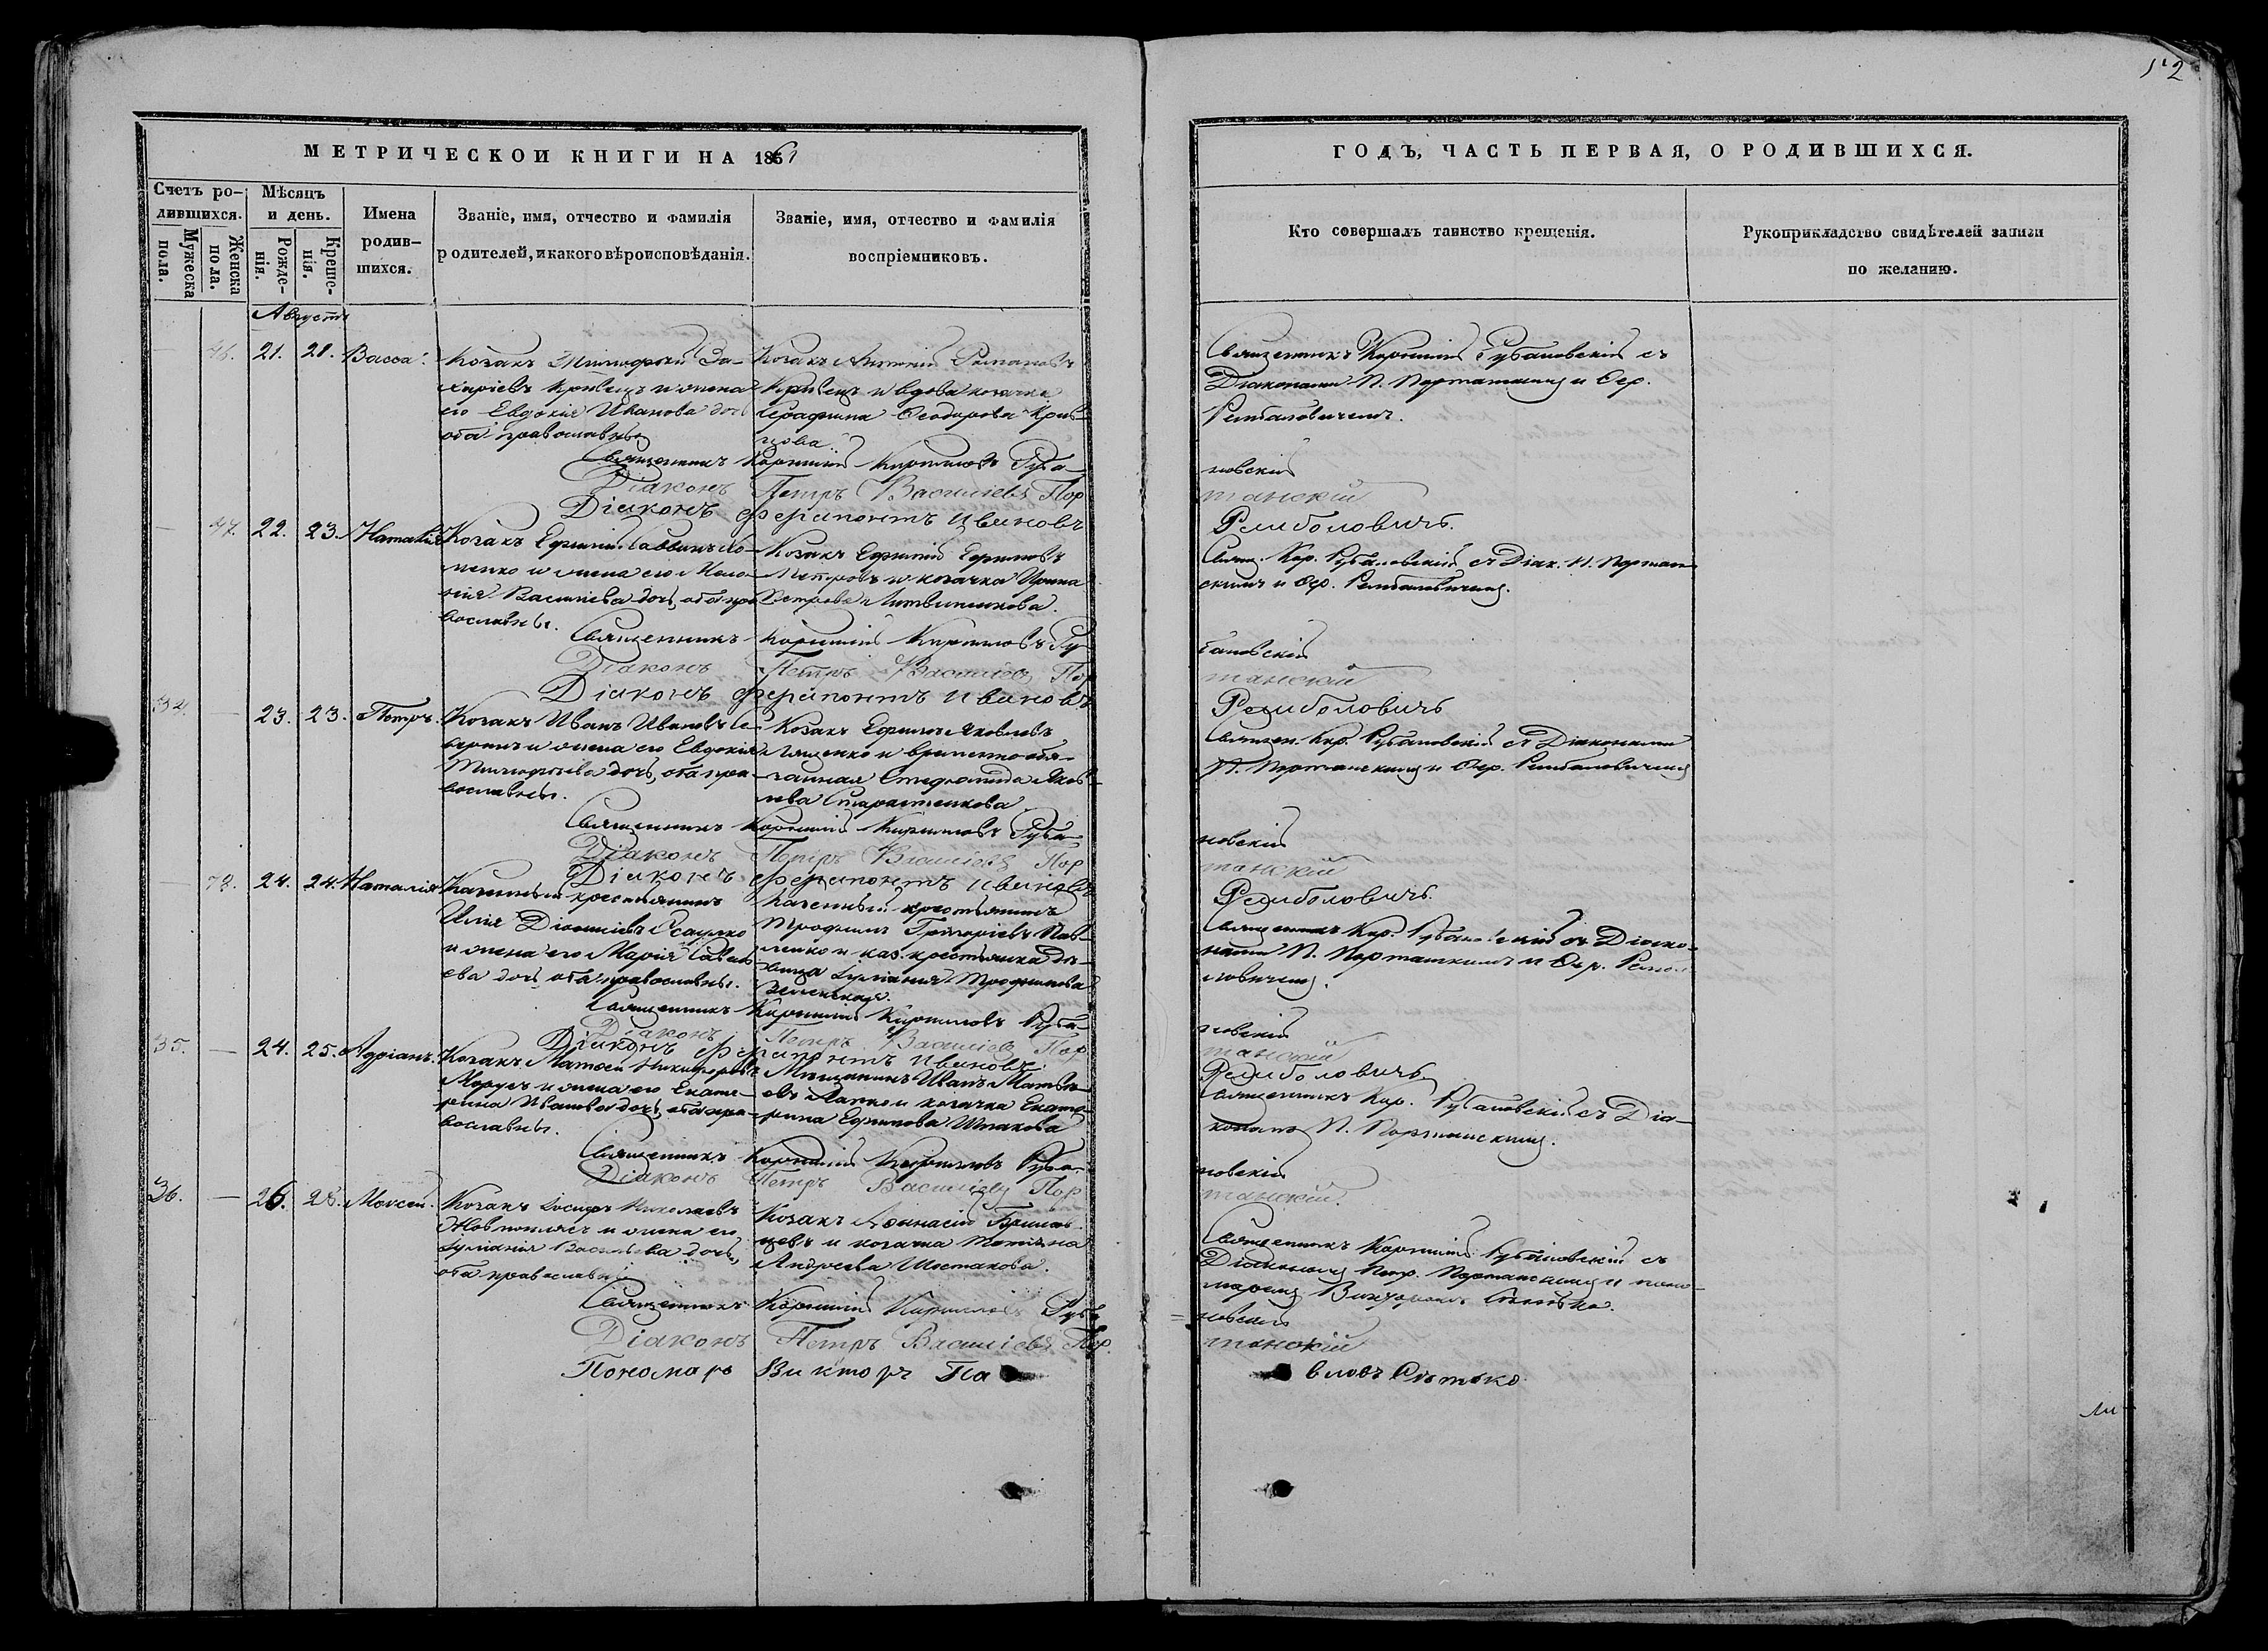 52
МЕТРИЧЕСКОЙ КНИГИ НА 1861
ГОДЪ, ЧАСТЬ ПЕРВАЯ, О РОДИВШИХСЯ.
Счетъ ро-
дившихся.
Мужеска
пола.
Женска
пола.
Мѣсяцъ
и день.
Рожде-
нія.
Креще-
нія.
Имена
родив-
шихся.
Званіе, имя, отчество и фамилія
родителей, и какого вѣроисповѣданія.
Званіе, имя, отчество и фамилія
воспріемниковъ.
Кто совершалъ таинство крещенія.
Рукоприкладство свидѣтелей записи
по желанію.
Августъ
21. 21. Васса.
Козакъ Тимофей За-
харіевъ Кривецъ и жена
его Евдокія Иванова дочь
оба православны
Козакъ Антоній Романовъ
Кривецъ и вдова козачка
Серафима Ѳеодорова Крив-
цова.
Священникъ Корнилій Рубановскій съ
Діаконами П. Порташскимъ и Ѳер.
Рембаловичемъ.
Священникъ Корнилій Кириловъ Руба-
новскій
Діаконъ Петръ Василіевъ Пор
танскій
Діаконъ Ферапонтъ Ивановъ
Рембаловичъ.
47. 22. 23. Наталія
Козакъ Ефимій Саввинъ Хо-
менко и жена его Мела-
нія Василіева дочь, оба пра
вославны.
Козакъ Ефимій Ефимовъ
Петровъ и козачка Ирина
Петрова Литвиненкова.
Свящ. Кор. Рубановскій съ Діак. П. Порташ
скимъ и Ѳер. Рембаловичемъ.
Священникъ Корнилій Кириловъ Ру
бановскій
Діаконъ Петръ Василіевъ Пор
танскій
Діаконъ Ферапонтъ Ивановъ
Рембаловичъ
34. 23. 23. Петръ.
Козакъ Иванъ Ивановъ Се-
веринъ и жена его Евдокія
Тимофеева дочь, оба пра-
вославны.
Козакъ Ефимъ Яковлевъ
Ляшенко и временно-обя-
занная Стефанида Яков-
лева
Священ. Кор. Рубановскій съ Діаконами
П. Порташскимъ и Ѳер. Рембаловичемъ
Священникъ Корнилій Кириловъ Руба-
новскій
Діаконъ Петръ Василіевъ Пор
танскій
Діаконъ Ферапонтъ Ивановъ
Рембаловичъ.
48. 24. 24. Наталія
Казенный крестьянинъ
Илія Діонисіевъ
и жена его Марія Савель
ева дочь, оба православны.
Казенный крестьянинъ
Трофимъ Григоріевъ Пав-
ленко и каз. крестьянка дѣ-
вица Іуліанія Трофимова
Зеленская.
Священникъ Кор. Рубановскій съ Діако-
нами П. Порташскимъ и Ѳер. Ремба-
ловичемъ.
Священникъ Корнилій Кириловъ Руба-
новскій
Діаконъ Петръ Василіевъ Пор
танскій
Діаконъ Ферапонтъ Ивановъ
Рембаловичъ
35. 24. 25. Адріанъ.
Козакъ Матѳей Никифоровъ
и жена его Екате-
рина Иванова дочь, оба пра-
вославны.
Мѣщанинъ Иванъ Матвѣ-
евъ Лапко и козачка Екате-
рина Ефимова Шпакова
Священникъ Кор. Рубановскій съ Діа-
кономъ П. Порташскимъ.
Священникъ Корнилій Кириловъ Руба-
новскій
Діаконъ Петръ Василіевъ Пор
танскій.
36. 26. 28. Моисей.
Козакъ Іосифъ Николаевъ
и жена его
Іуліанія Васильева дочь,
оба православны
Козакъ Аѳанасій
и козачка Татіана
Андреева Шостакова.
Священникъ Корнилій Рубановскій съ
Діакономъ Петр. Порташскимъ и поно-
маремъ Викторомъ
Священникъ Корнилій Кириловъ Руба
новскій
Діаконъ Петръ Василіевъ Пор.
танскій
Пономарь Викторъ Па
вловъ